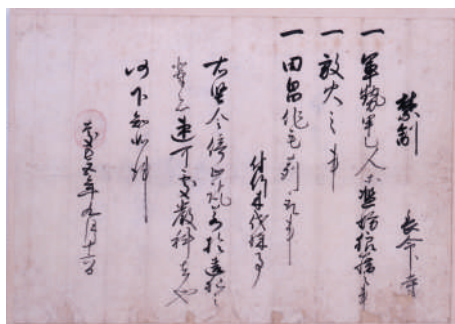 禁制 長命寺
一 軍勢甲乙人等濫妨狼藉之事
一 放火之事
一 田畠作毛苅取事
付竹木伐採事
右堅令停止訖若於違犯之
輩者速可処厳科者也
仍下知如件
慶長五年九月十六日